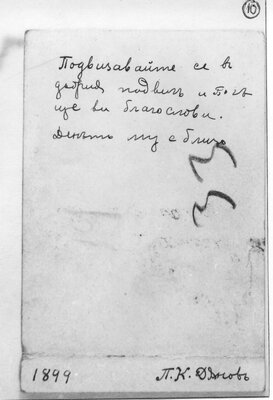 10
Подвизавайте се въ
добрия подвигъ и Богъ
ще ви благослови.
Деньтъ му е близо
1899
П. К. Дѫновъ